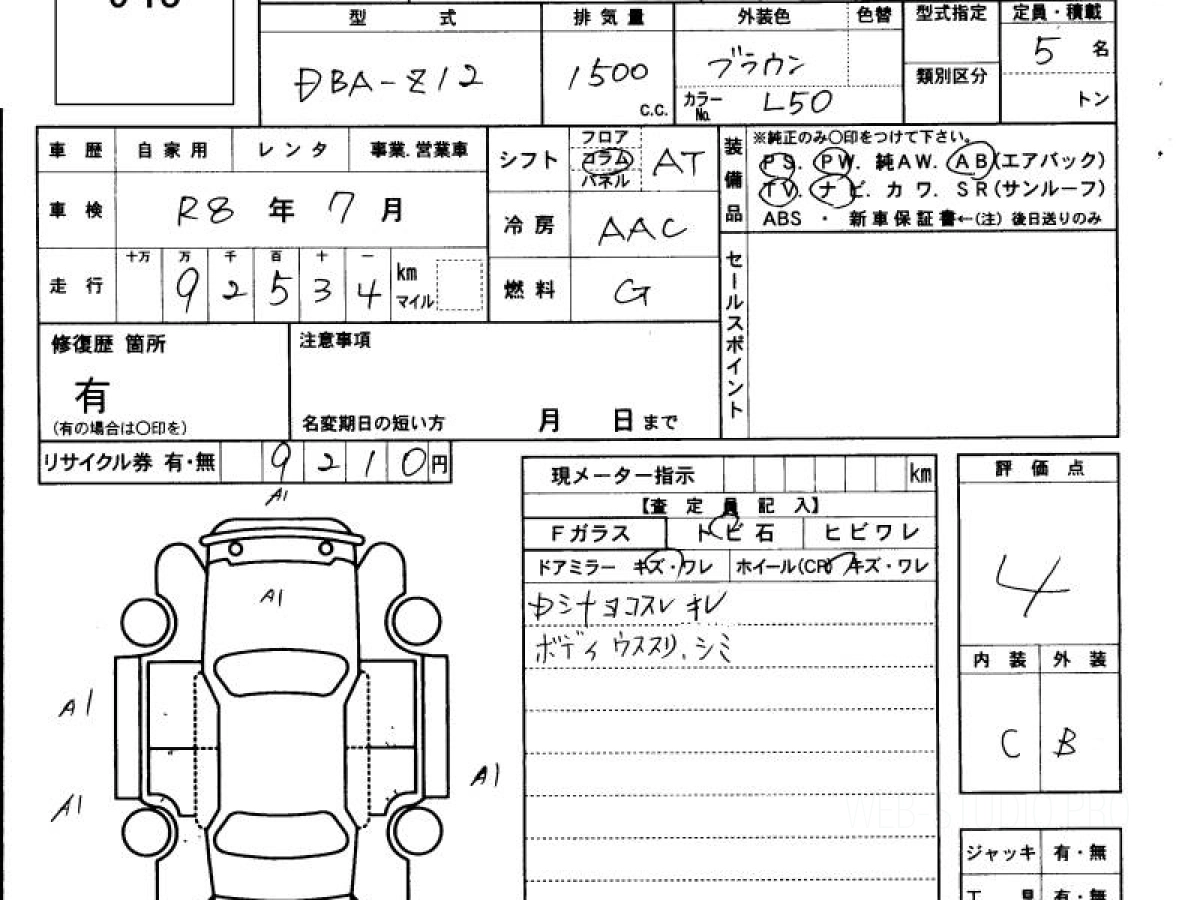 型 式 排気量 外装色 色替 型式指定 定員・積載
DBA-Z12 1500 c.c. ブラウン 5 名
カラーNo. L50 類別区分 トン
車歴 自家用 レンタ 事業.営業車
シフト フロア コラム パネル AT
車検 R8 年 7 月
冷房 AAC
走行 十万 万 千 百 十 一
9 2 5 3 4 km マイル
燃料 G
装備品 ※純正のみ〇印をつけて下さい。
PS. PW. 純AW. AB(エアバック)
TV. ナビ. カワ. SR(サンルーフ)
ABS ・ 新車保証書←(注) 後日送りのみ
セールスポイント
修復歴 箇所
有
(有の場合は〇印を)
注意事項
名変期日の短い方 月 日まで
リサイクル券 有・無 9 2 1 0 円
現メーター指示 km
【査定員記入】
Fガラス トビ石 ヒビワレ
ドアミラー キズ・ワレ ホイール(CP) キズ・ワレ
ウチナヨコスレ キレ
ボディ ウススリ.シミ
評価点
4
内装 外装
C B
ジャッキ 有・無
工具 有・無
A1
A1
A1
A1
A1
WEB-STUDIO.PRO